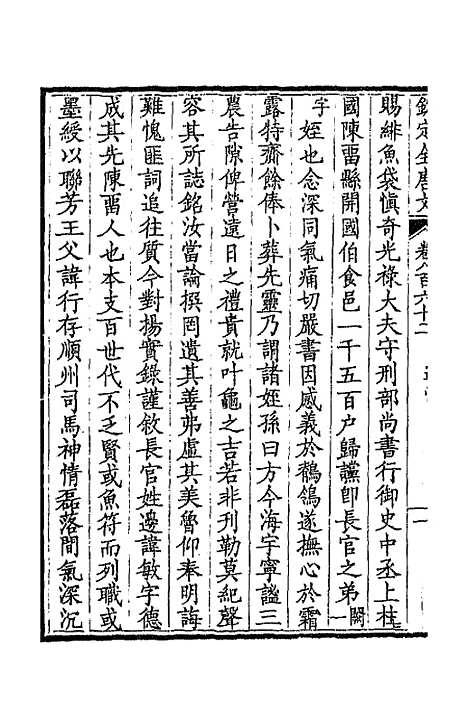 欽定全唐文 卷八百六十二
賜緋魚袋愼奇光祿大夫守刑部尚書行御史中丞上柱
國陳畱縣開國伯食邑一千五百户歸讜卽長官之弟闕一
字姪也念深同氣痛切嚴書因感義於鶺鴒遂撫心於霜
露特齋餘俸卜葬先靈乃謂諸姪孫曰方今海宇寧謐三
農告隙俾營遠日之禮貴就叶龜之吉若非刋勒莫紀聲
容其所誌銘汝當論撰罔遺其善弗虛其美魯仰奉明誨
難愧匪詞追往質今對揚實錄謹敘長官姓邊諱敏字德
成其先陳畱人也本支百世代不乏賢或魚符而列職或
墨綬以聯芳王父諱行存順州司馬神情磊落閒氣深沉